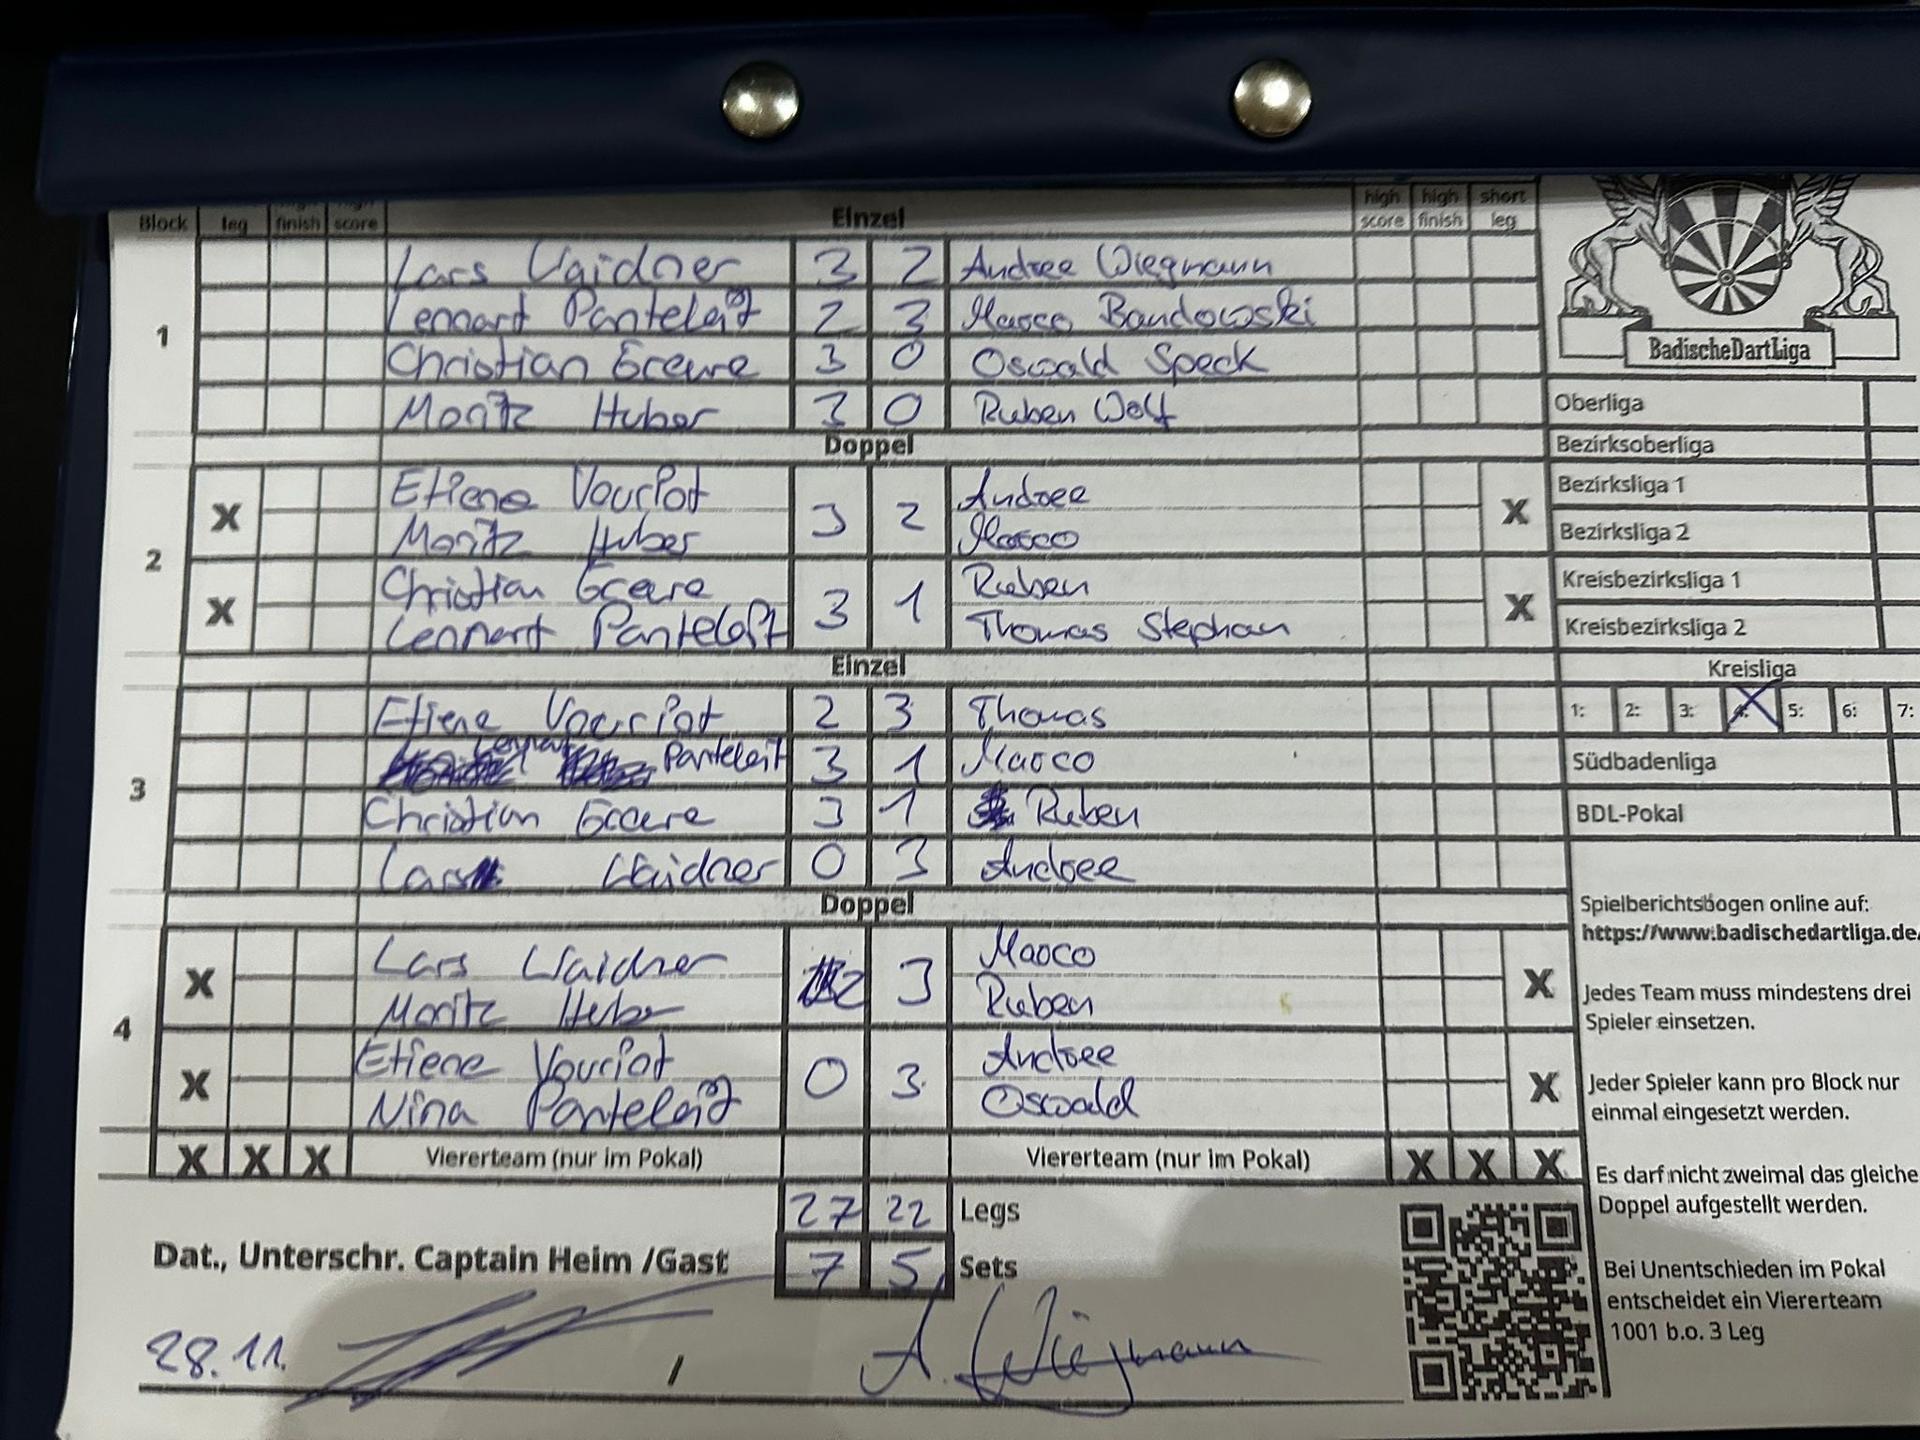 Block leg finish score Einzel high score high finish short leg
Lars Waidner 3 2 Andree Wiegmann
Lennart Panteleit 2 3 Marco Bandowski
1
Christian Greewe 3 0 Oswald Speck
Moritz Huber 3 0 Ruben Wolf
Doppel
Etiene Vouriot 3 2 Andree
X X
Moritz Huber Marco
2
Christian Greewe 3 1 Ruben
X X
Lennart Panteleit Thomas Stephan
Einzel
Etiene Vouriot 2 3 Thomas
Lennart Panteleit 3 1 Marco
3
Christian Greewe 3 1 Ruben
Lars Waidner 0 3 Andree
Doppel
Lars Waidner 2 3 Marco
X X
Moritz Huber Ruben
4
Etiene Vouriot 0 3 Andree
X X
Nina Panteleit Oswald
X X X Viererteam (nur im Pokal) Viererteam (nur im Pokal) X X X
27 22 Legs
Dat., Unterschr. Captain Heim /Gast 7 5 Sets
28.11. / A. Wiegmann
BadischeDartLiga
Oberliga
Bezirksoberliga
Bezirksliga 1
Bezirksliga 2
Kreisbezirksliga 1
Kreisbezirksliga 2
Kreisliga
1: 2: 3: 4: 5: 6: 7:
Südbadenliga
BDL-Pokal
Spielberichtsbogen online auf:
https://www.badischedartliga.de
Jedes Team muss mindestens drei
Spieler einsetzen.
Jeder Spieler kann pro Block nur
einmal eingesetzt werden.
Es darf nicht zweimal das gleiche
Doppel aufgestellt werden.
Bei Unentschieden im Pokal
entscheidet ein Viererteam
1001 b.o. 3 Leg